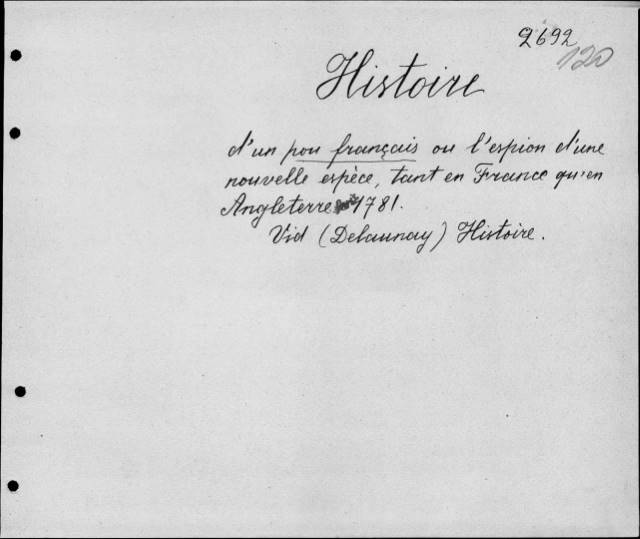 2692
120
Histoire
d'un pou français ou l'espion d'une
nouvelle espèce, tant en France qu'en
Angleterre 1781.
Vid (Delaunay) Histoire.